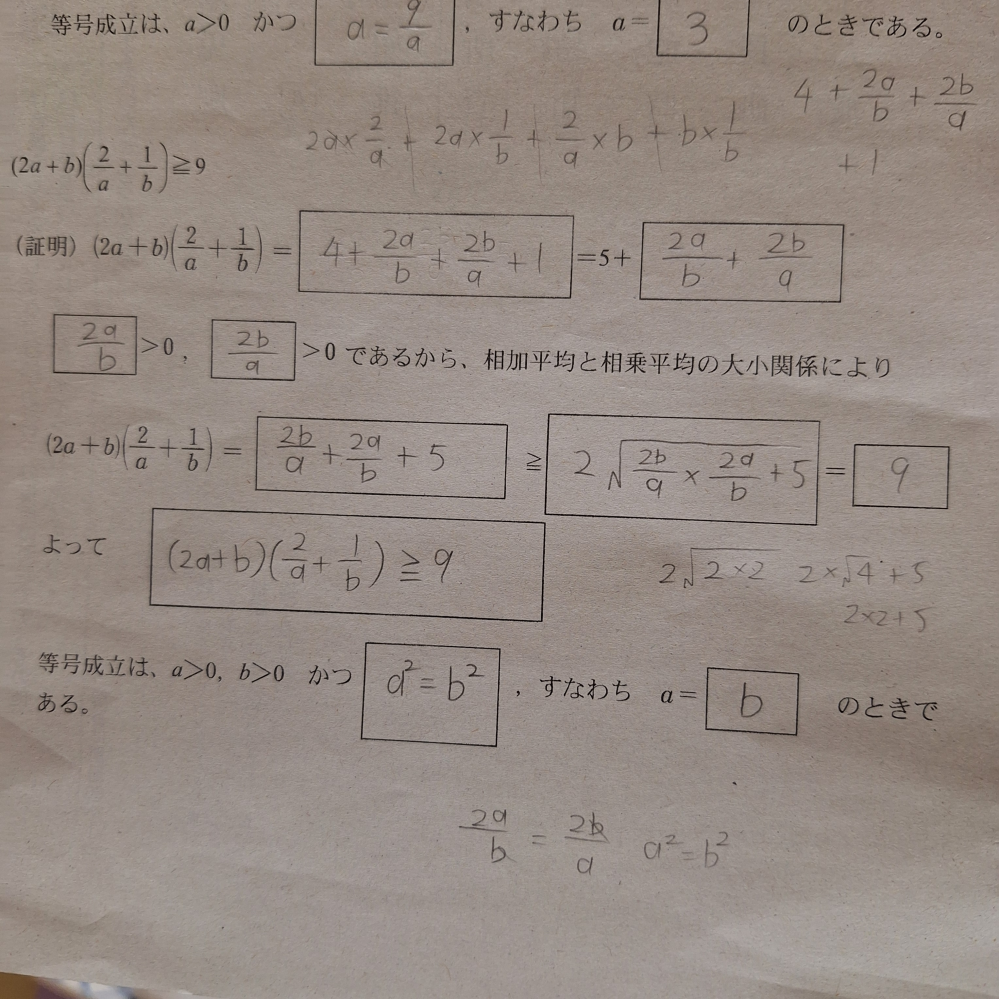 等号成立は、a>0 かつ a=9/a , すなわち a= 3 のときである。
4 + 2a/b + 2b/a
+1
2a×2/a + 2a×1/b + 2/a×b + b×1/b
(2a+b)(2/a+1/b)≧9
(証明) (2a+b)(2/a+1/b) = 4+2a/b+2b/a+1 =5+ 2a/b+2b/a
2a/b >0 , 2b/a >0 であるから、相加平均と相乗平均の大小関係により
(2a+b)(2/a+1/b) = 2b/a+2a/b+5 ≧ 2√(2b/a×2a/b+5) = 9
よって (2a+b)(2/a+1/b)≧9
2√(2×2) 2×√4+5
2×2+5
等号成立は、a>0, b>0 かつ a²=b² , すなわち a= b のときで
ある。
2a/b = 2b/a a²=b²